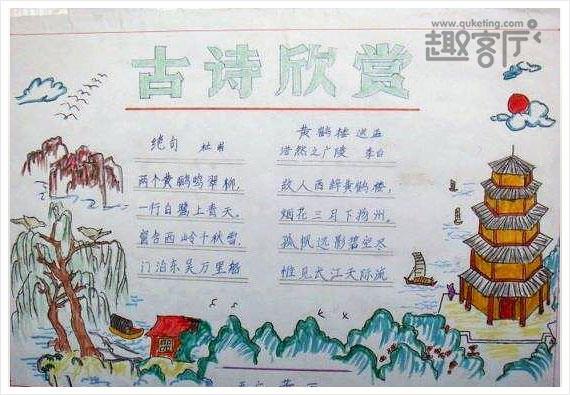 www.quketing.com
趣客厅
古诗欣赏
绝句 杜甫
两个黄鹂鸣翠柳,
一行白鹭上青天。
窗含西岭千秋雪,
门泊东吴万里船
黄鹤楼送孟
浩然之广陵 李白
故人西辞黄鹤楼,
烟花三月下扬州,
孤帆远影碧空尽
惟见长江天际流